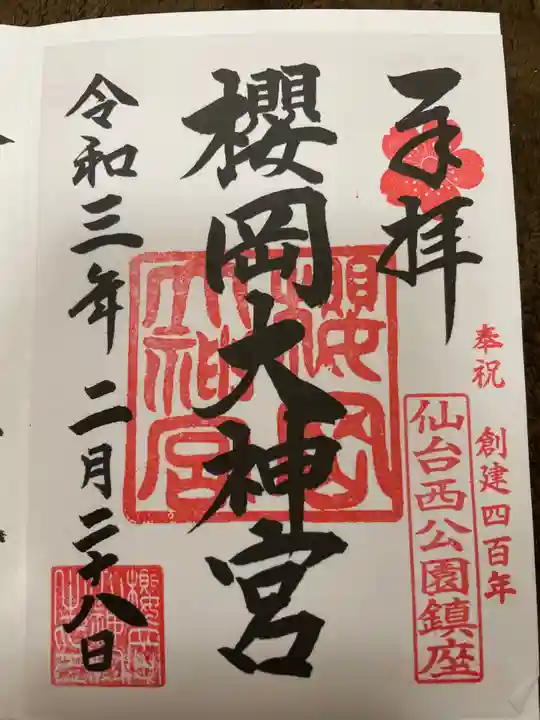 奉拝
奉祝 創建四百年
仙台西公園鎮座
櫻岡大神宮
櫻岡大神宮
令和三年 二月二十八日